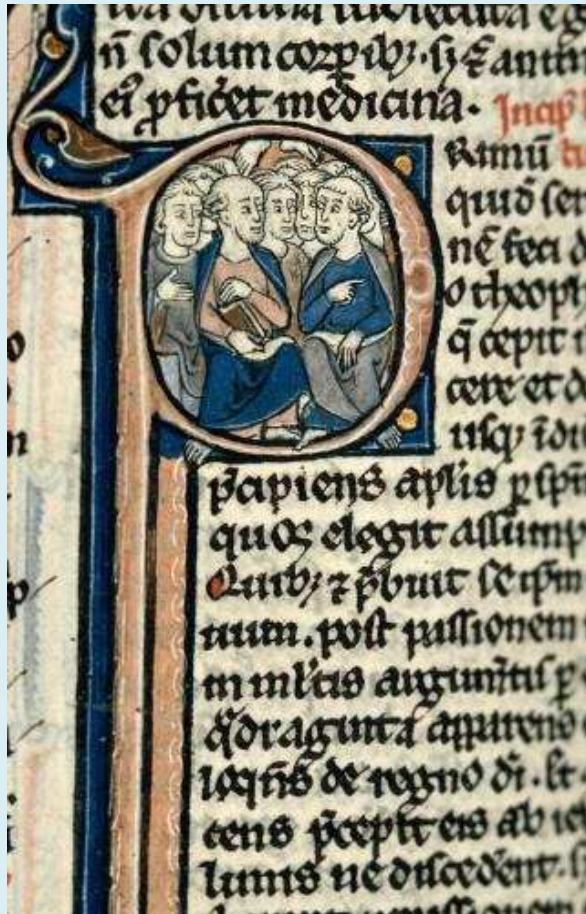 n̄ solum corꝑibꝫ. sꝫ ⁊ anim
ei᷒ ꝓficeret medicina. Incip
Rimū
quid̄ ser
nē feci d
o theoph
q̄ cepit
cere et d
usqꝫ ī di
p̄cipiens apl̄is ꝑ sp̄m
quos elegit assump
Quibꝫ ⁊ p̄buit se ip̄m
uum. post passionem
in ml̄tis argum̄tis ꝑ
q̄draginta apparens
loqn̄s de regno dī. Et
cens p̄cepit eis ab ie
limis ne discederent.